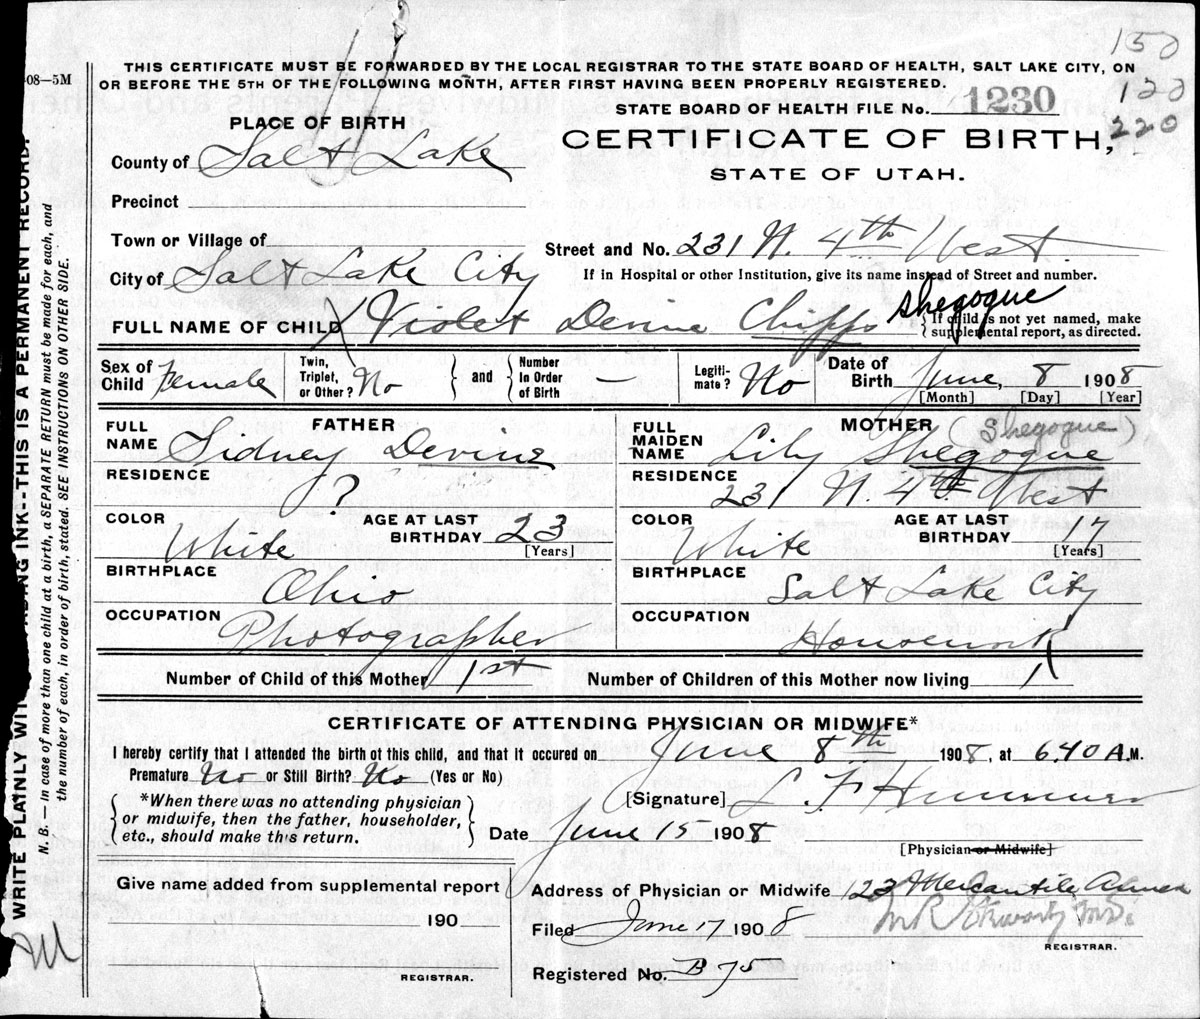 150
120
220
08—5M
THIS CERTIFICATE MUST BE FORWARDED BY THE LOCAL REGISTRAR TO THE STATE BOARD OF HEALTH, SALT LAKE CITY, ON
OR BEFORE THE 5TH OF THE FOLLOWING MONTH, AFTER FIRST HAVING BEEN PROPERLY REGISTERED.
STATE BOARD OF HEALTH FILE No. 1230
PLACE OF BIRTH
CERTIFICATE OF BIRTH,
STATE OF UTAH.
County of Salt Lake
Precinct
Town or Village of
Street and No. 231 N. 4th West
City of Salt Lake City
If in Hospital or other Institution, give its name instead of Street and number.
Shegogue
FULL NAME OF CHILD Violet Devine Chipps
If child is not yet named, make
supplemental report, as directed.
Sex of Child Female
Twin, Triplet, or Other? No
and
Number In Order of Birth —
Legiti-mate? No
Date of Birth June, 8 1908
[Month] [Day] [Year]
FATHER
FULL NAME Sidney Devine
RESIDENCE ?
COLOR White
AGE AT LAST BIRTHDAY 23
[Years]
BIRTHPLACE Ohio
OCCUPATION Photographer
MOTHER (Shegogue)
FULL MAIDEN NAME Lily Shegogue
RESIDENCE 231 N. 4th West
COLOR White
AGE AT LAST BIRTHDAY 17
[Years]
BIRTHPLACE Salt Lake City
OCCUPATION Housework
Number of Child of this Mother 1st
Number of Children of this Mother now living 1
CERTIFICATE OF ATTENDING PHYSICIAN OR MIDWIFE*
I hereby certify that I attended the birth of this child, and that it occured on June 8th 1908, at 6.40 A.M.
Premature No or Still Birth? No (Yes or No)
*When there was no attending physician
or midwife, then the father, householder,
etc., should make this return.
[Signature] L. F. Hummer
Date June 15 1908
[Physician or Midwife]
Give name added from supplemental report
190
REGISTRAR.
Address of Physician or Midwife 123 Mercantile
Filed June 17 1908
M.D.
REGISTRAR.
Registered No. B 75
WRITE PLAINLY WITH UNFADING INK--THIS IS A PERMANENT RECORD.
N. B. — In case of more than one child at a birth, a SEPARATE RETURN must be made for each, and
the number of each, in order of birth, stated. SEE INSTRUCTIONS ON OTHER SIDE.